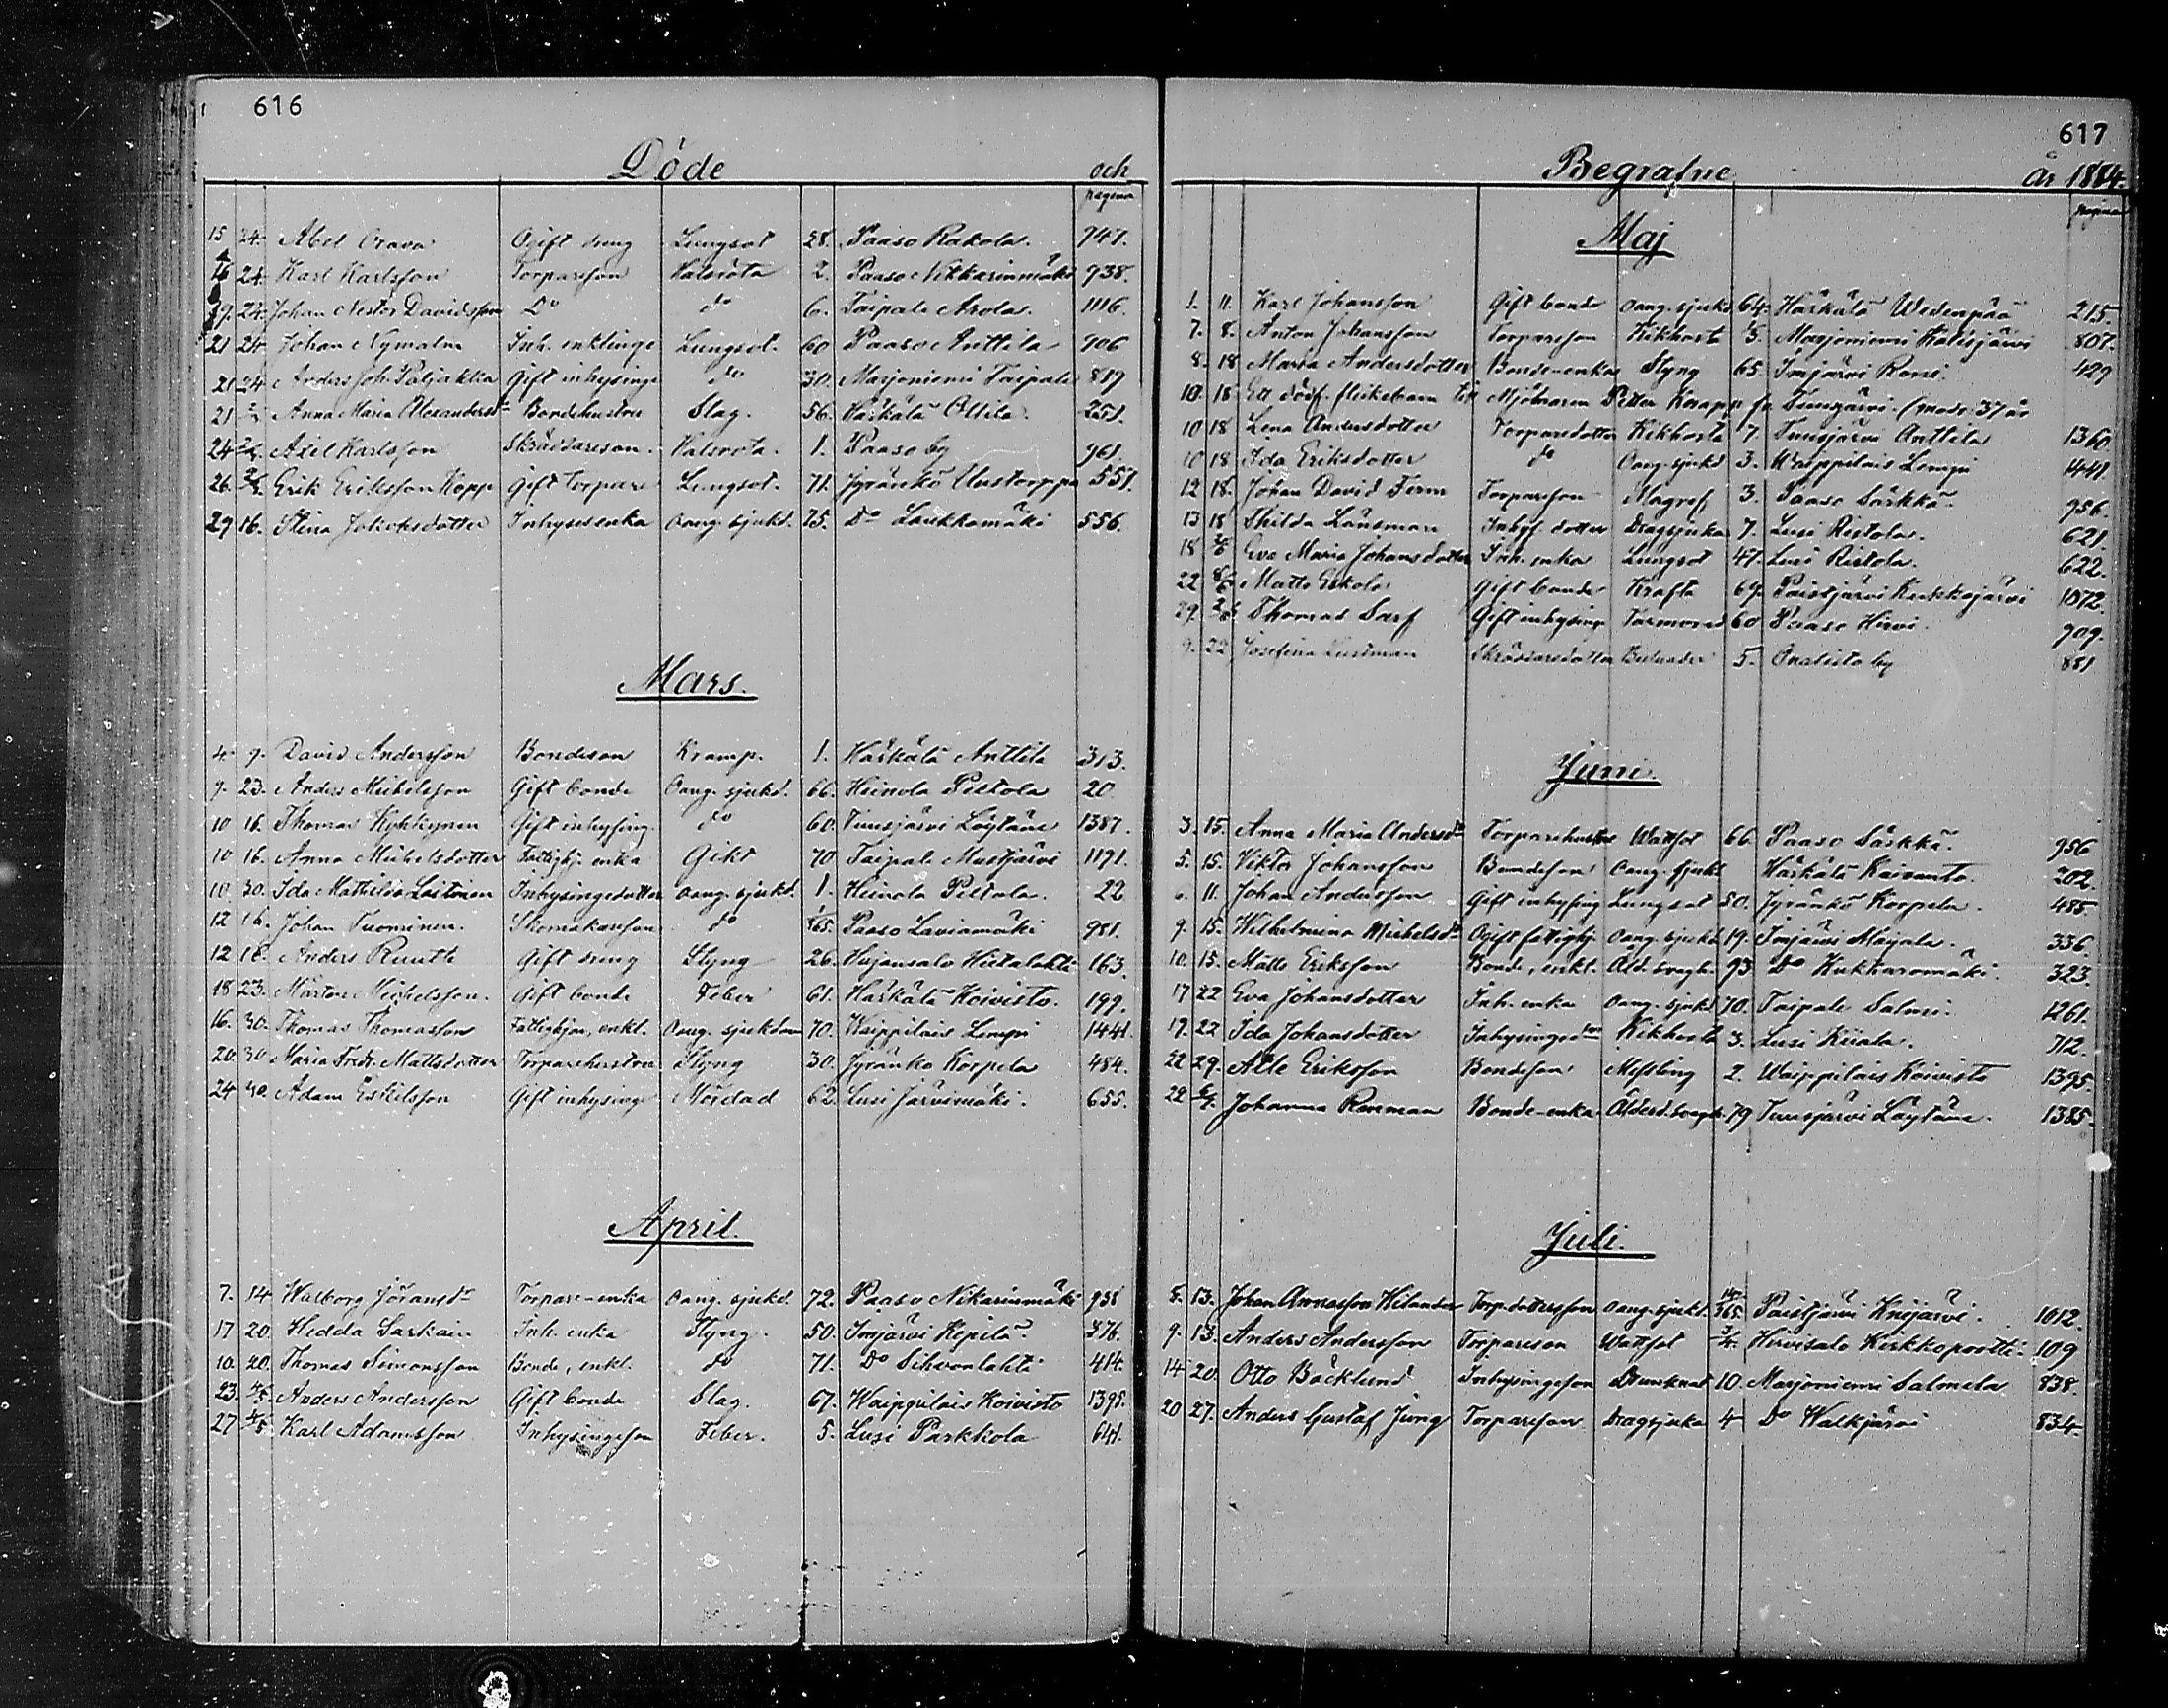 616
Döde och
pagina
15 24. Abel Orava Ogift dräng Lungsot 28. Paaso Rakola. 747.
16 24. Karl Karlsson Torpareson Halsröta 2. Paaso Nikkarinmäki 938.
19. 24. Johan Nestor Davidsson Do do 6. Taipale Arola. 1116.
21 24. Johan Nymalm Inh. enklinge Lungsot. 60 Paaso Anttila 906
21 24 Anders Joh. Paljakka Gift inhysinge do 30. Marjoniemi Taipale 819
21 Anna Maria Alexandersdr Bondehustru Slag. 56. Härkälä Ollila. 251.
24 Axel Karlsson Skräddareson. Halsröta. 1. Paaso by 961.
26. 2/3. Erik Eriksson Kopp Gift torpare Lungsot. 71. Jyränkö Uustorppa 551.
29 16. Stina Jakobsdotter Inhysesenka Oang. sjukd. 75. Do Laukkamäki 556.
Mars.
4 9. David Andersson Bondeson Kramp. 1. Härkälä Anttila 313.
9. 23. Anders Michelsson Gift bonde Oang. sjukd. 66. Heinola Peltola 20.
10 16. Thomas Kykkynen Gift inhysing. do 60. Tuusjärvi Löytäne 1387.
10 16. Anna Michelsdotter Fattighj. enka Gikt 70 Taipale Mustjärvi 1191.
10. 30. Ida Mathilda Laitinen Inhysingedotter Oang. sjukd. 1. Heinola Peltola. 22
12 16. Johan Tuominen. Skomakareson do 1/365. Paaso Laviamäki 981.
12 16. Anders Ruuth Gift dräng Styng 26. Hujansalo Hietalahti 163.
18 23. Mårten Michelsson. Gift bonde Feber 61. Härkälä Koivisto. 199.
16. 30. Thomas Thomasson Fattighjon, enkl. Oang. sjukdom 70. Waippilais Lempi 1441.
20. 30 Maria Fredr. Mattsdotter Torparehustru Styng 30. Jyränkö Korpela 484.
24 30. Adam Eskilsson Gift inhysinge Mördad 62. Lusi Järvimäki. 655.
April.
7. 14 Walborg Jöransdr Torpare-enka Oang. sjukd. 72. Paaso Nikarinmäki 938
17 20. Hedda Sarkain Inh. enka Styng. 50. Imjärvi Kepilä. 376.
10. 20. Thomas Simonsson Bonde, enkl. do 71. Do Sihvonlahti 414.
23. 4/5. Anders Andersson Gift bonde Slag. 67. Waippilais Koivisto 1395.
27 4/5. Karl Adamsson Inhysingeson Feber. 5. Lusi Parkkola 641.
617
Begrafne år 1884.
pagina
Maj
1. 11. Karl Johansson Gift bonde Oang. sjukd 64. Härkälä Wedenpää 215
7. 8. Anton Johansson Torpareson Kikhosta Marjoniemi Kalisjärvi 807.
8. 18 Maria Andersdotter Bonde-enka Styng 65. Imjärvi Ronni. 429
10. 18. Ett dödf. flickebarn till Mjölnaren Petter Knapp fr Tuusjärvi. (moder 37 år
10 18 Lena Andersdotter Torparedotter Kikhosta 7. Tuusjärvi Anttila 1360.
10 18 Ida Eriksdotter do Oang. sjukd 3. Waippilais Lempi 1441.
12 18. Johan David Ferm Torpareson Magref 3. Paaso Särkkä. 956.
13 18 Thilda Länsman Inhys. dotter Dragsjuka 7. Lusi Ristola. 621.
18 Eva Maria Johansdotter Inh. enka Lungsot 47. Lusi Ristola. 622.
22 8/6 Matts Eskola Gift bonde Kräfta 69. Paistjärvi Kukkojärvi 1072.
29. Thomas Sarf Gift inhysinge 60 Paaso Hirvi. 909.
9. 22 Josefina Lustman Skräddaredotter 5. Onalisto by 881
Juni.
3. 15. Anna Maria Andersdr Torparehustru Wattsot 66. Paaso Särkkä. 956
5. 15. Viktor Johansson Bondeson Oang. sjukd Härkälä Kaivanto. 202.
6. 11. Johan Andersson Gift inhysing Lungsot 50. Jyränkö Korpela. 485.
9. 15. Wilhelmina Michelsdr Ogift fattighj. Oang. sjukd. 19. Imjärvi Maijala. 336.
10. 15. Matts Eriksson Bonde, enkl. Åld. bragh. 93 Do Kukkaromäki. 323.
17 22 Eva Johansdotter Inh. enka Oang. sjukd 70. Taipale Salmi. 1261.
19. 22 Ida Johansdotter Kikhosta 3. Lusi Kiiala. 712.
22 29. Alle Eriksson Bondeson Messling 2. Waippilais Koivisto 1395.
22 6/7. Johanna Renman Bonde-enka Ålderd. bragh. 79 Tuusjärvi Löytäne. 1385.
Juli.
5. 13. Johan Annasson Hilander Torp. dottersson Oang. sjukd. 14/365. Paistjärvi Knijärvi. 1012.
9. 13. Anders Andersson Torpareson Wattsot Hirvisalo Kirkkoportti. 109
14 20. Otto Bäcklund Inhysingeson Drunknat 10. Marjoniemi Salmela 838.
20 27. Anders Gustaf Jung Torpareson Dragsjuka 4 Do Walkjärvi 834.